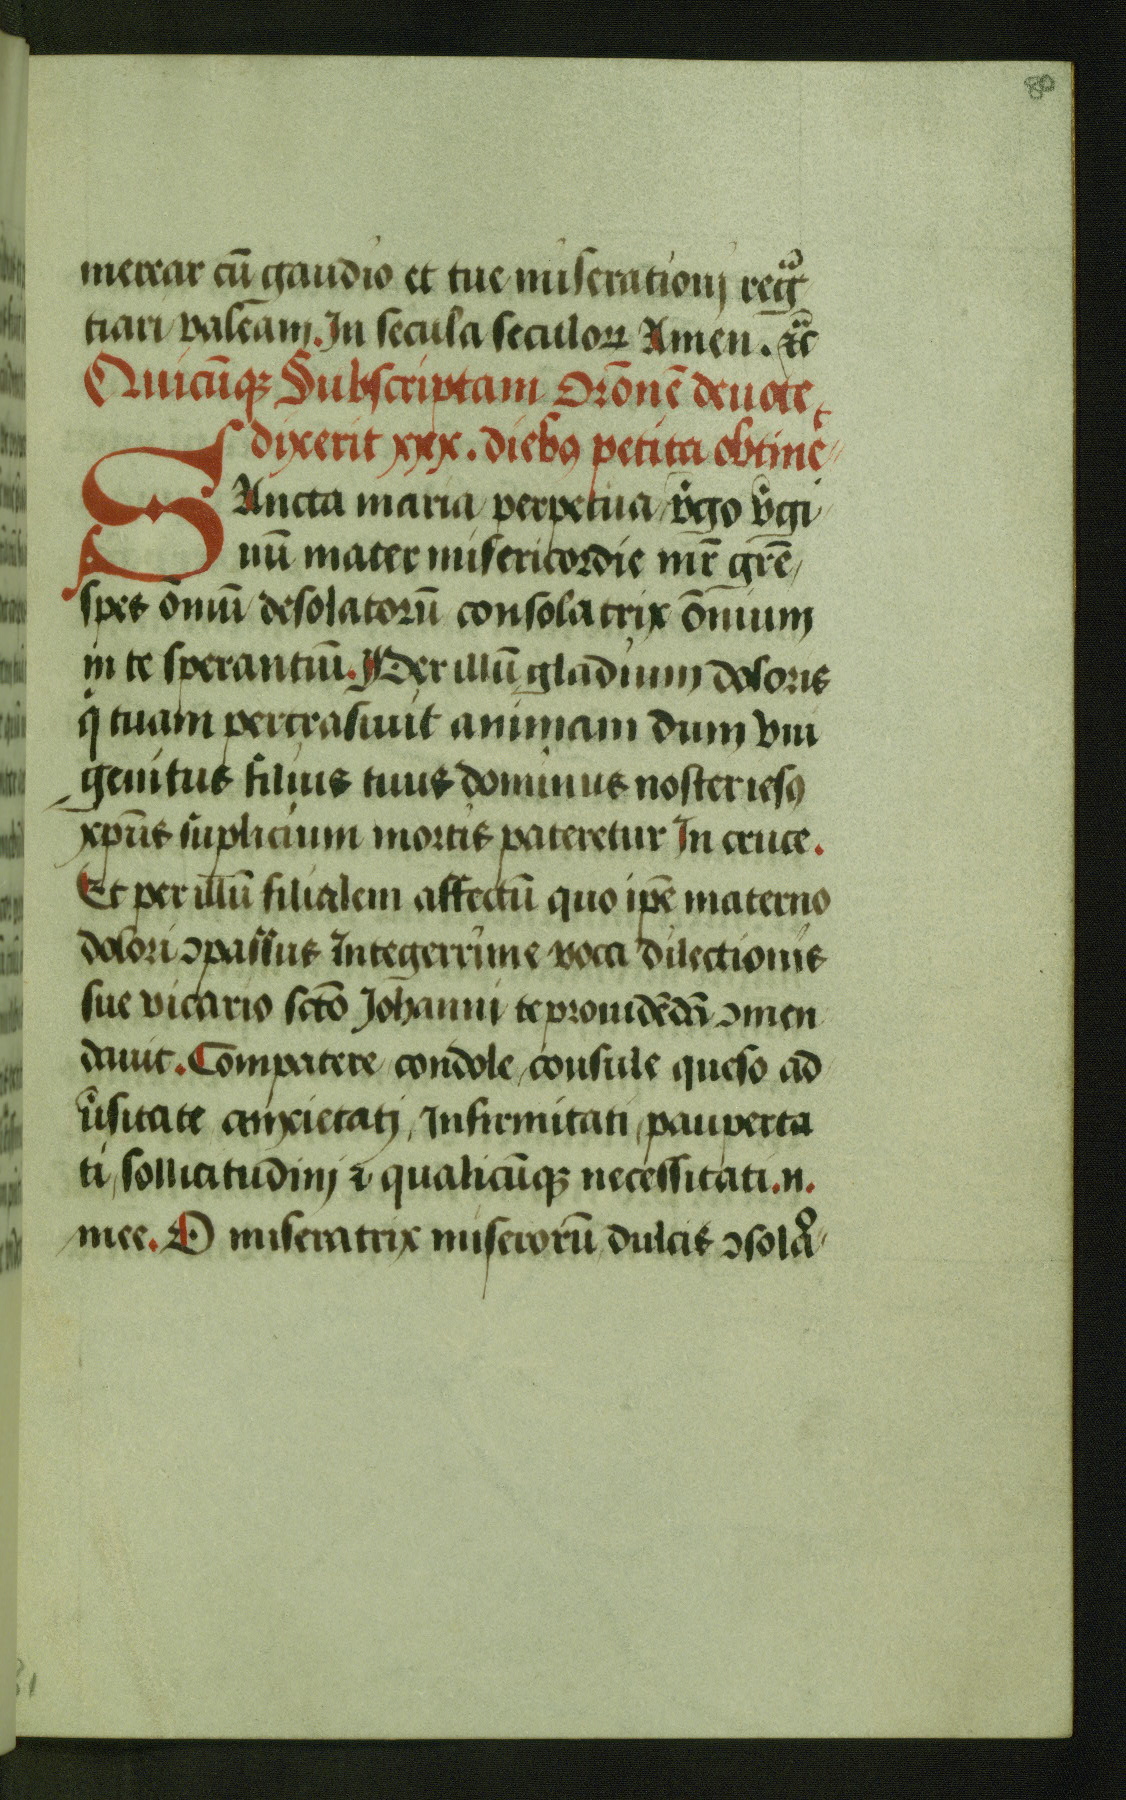 80
merear cū gaudio et tue miserationj regr̄a
tiari valeam. In secula seculoꝝ Amen. ⁊c̄
Quicūqꝫ Subscriptam Orōnē deuote
dixerit xxx. diebꝯ petita obtinet
SAncta maria perpetua vͥgo vͥgi
nū mater misericordie mr̄ grē
spes om̄iū desolatorū consolatrix om̄ium
in te sperantiū. Per illū gladium doloris
qͥ tuam pertrāsiuit animam dum vni
genitus filius tuus dominus noster iesꝯ
xp̄us suplicium mortis pateretur In cruce.
Et per illū filialem affectū quo ip̄e materno
dolori ↄpassus Integerrime vota dilectionis
sue vicario scto̅ Johanni te prouidēdā ↄmen
dauit. Compatere condole consule queso ad
uͥsitate anxietatj Infirmitati pauperta
ti sollicitudinj ⁊ qualicūqꝫ necessitati .n.
mee. O miseratrix miserorū dulcis ↄsola